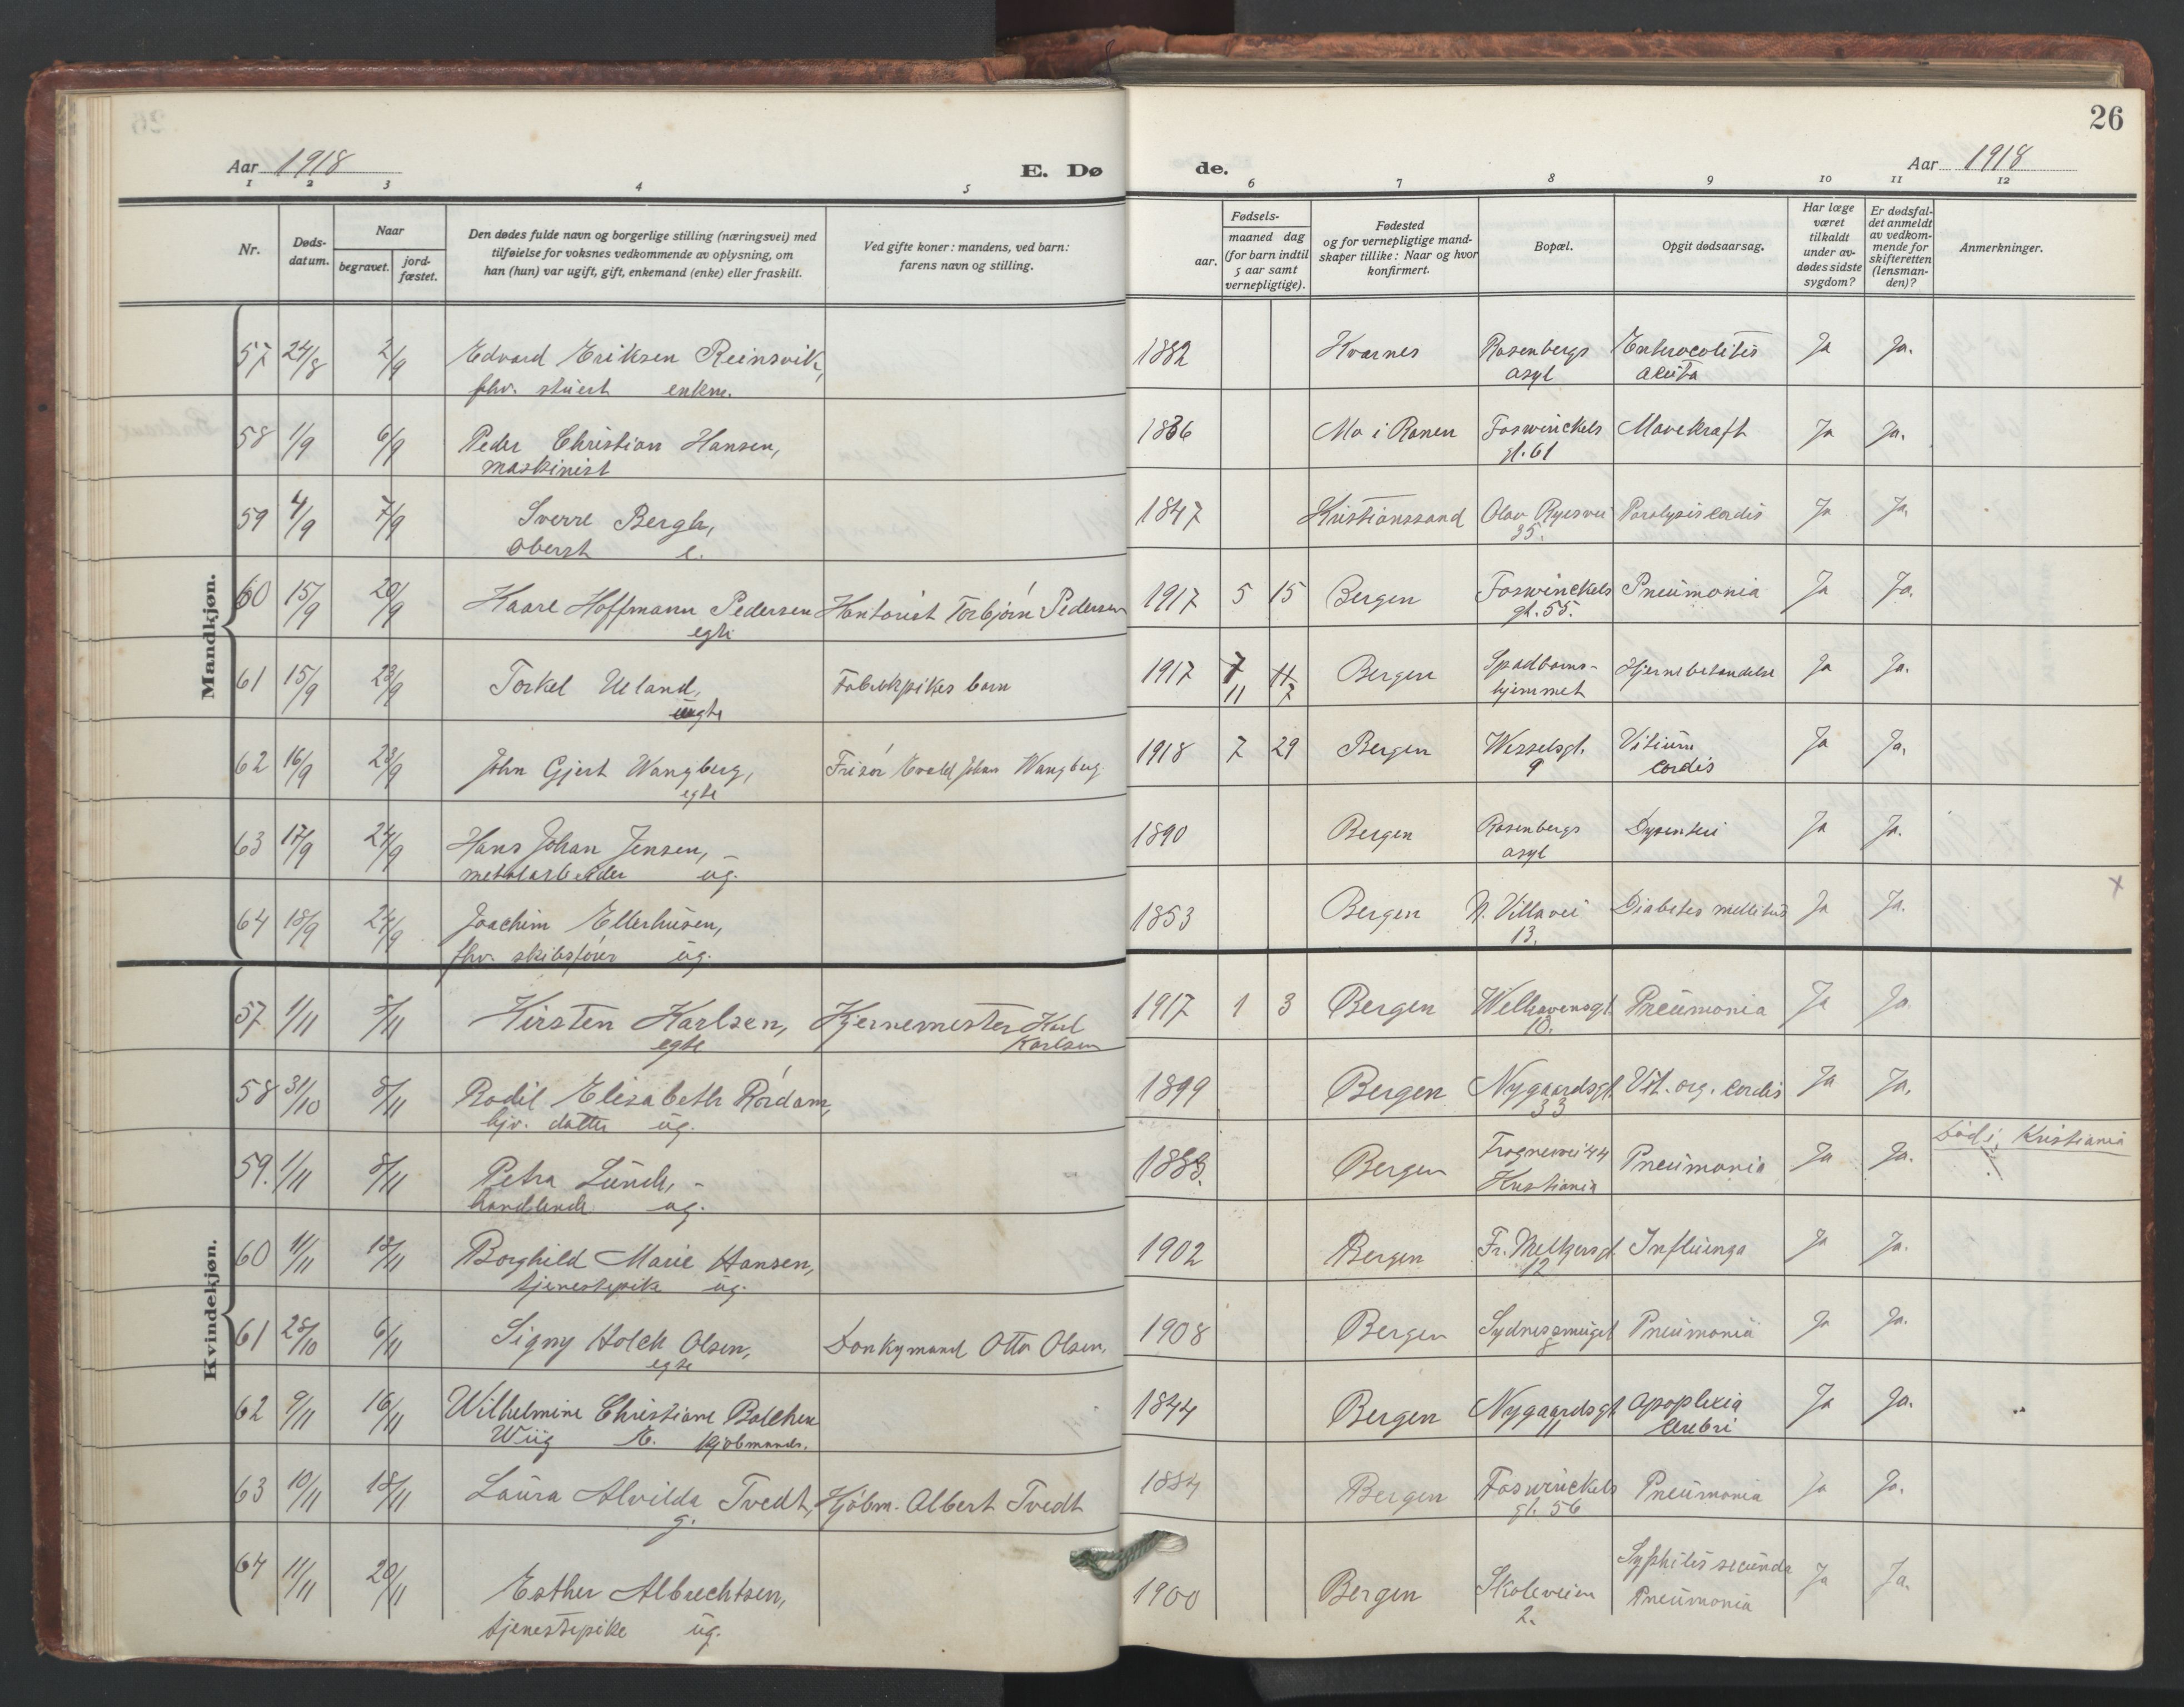 26
Aar 1918
E. Dø de.
Aar 1918
1 2 3 4 5 6 7 8 9 10 11 12
Nr.
Døds-
datum.
Naar
begravet.
jord-
fæstet.
Den dødes fulde navn og borgerlige stilling (næringsvei) med
tilføielse for voksnes vedkommende av oplysning, om
han (hun) var ugift, gift, enkemand (enke) eller fraskilt.
Ved gifte koner: mandens, ved barn:
farens navn og stilling.
Fødsels-
aar.
maaned dag
(for barn indtil
5 aar samt
vernepligtige).
Fødested
og for vernepligtige mand-
skaper tillike: Naar og hvor
konfirmert.
Bopæl.
Opgit dødsaarsag.
Har læge
været
tilkaldt
under av-
dødes sidste
sygdom?
Er dødsfal-
det anmeldt
av vedkom-
mende for
skifteretten
(lensman-
den)?
Anmerkninger.
Mandkjøn.
57 24/8 2/9 Edvard Eriksen Reinsvik, 1882 Kvarnes Rosenbergs Enterocolitis Ja Ja.
fhv. stuert enkm. asyl acuta
58 1/9 6/9 Peder Christian Hansen, 1836 Mo i Ranen Foswinckels Mavekraft Ja Ja.
maskinist gt. 61
59 4/9 7/9 Sverre Bergh, 1847 Kristianssand Olav Ryesvei Paralysis cordis Ja Ja.
Oberst e. 35.
60 15/9 20/9 Kaare Hoffmann Pedersen Kontorist Torbjørn Pedersen 1917 5 15 Bergen Foswinckels Pneumonia Ja Ja.
egte gt. 55.
61 15/9 23/9 Torkel Ueland, Fabrikpikes barn 1917 7 11 Bergen Spædbarns- Hjernebetændelse Ja Ja.
uegte 11 7 hjemmet
62 16/9 23/9 John Gjert Wangberg, Frisør Evald Johan Wangberg. 1918 7 29 Bergen Wesselsgt. Vitium Ja Ja.
egte 9 cordis
63 17/9 24/9 Hans Johan Jensen, 1890 Bergen Rosenbergs Dysenteri Ja Ja.
metalarbeider ug. asyl
64 18/9 24/9 Joachim Ellerhusen, 1853 Bergen N. Villavei Diabetes mellitus Ja Ja. x
fhv. skibsfører ug. 13.
Kvindekjøn.
57 1/11 5/11 Kirsten Karlsen, Kjernemester Karl 1917 1 3 Bergen Welhavensgt. Pneumonia Ja Ja
egte Karlsen 10.
58 31/10 8/11 Bodil Elisabeth Rørdam, 1899 Bergen Nygaardsgt. Vit. org. cordis Ja Ja.
hjv. datter ug. 33
59. 1/11 8/11 Petra Lund, 1883. Bergen Frognervei 44 Pneumonia Ja Ja. Død i Kristiania
handlende ug. Kristiania
60 11/11 18/11 Borghild Marie Hansen, 1902 Bergen Fr. Melkersgt. Influenza Ja Ja.
tjenestepike ug. 12
61 28/10 6/11 Signy Holck Olsen, Donkymand Otto Olsen. 1908 Bergen Sydnessmuget Pneumonia Ja Ja.
egte 8
62 9/11 16/11 Wilhelmine Christiane Balchen 1844 Bergen Nygaardsgt Apoplexia Ja Ja.
Wiig E. kjøbmands. 11 cerebri
63 10/11 18/11 Laura Alvilda Tvedt, Kjøbm. Albert Tvedt 1884 Bergen Foswinckels Pneumonia Ja Ja.
g. gt. 56
64 11/11 20/11 Esther Albrechtsen, 1900 Bergen Skoleveien Syphilis secunda Ja Ja.
tjenestepike ug. 2. Pneumonia